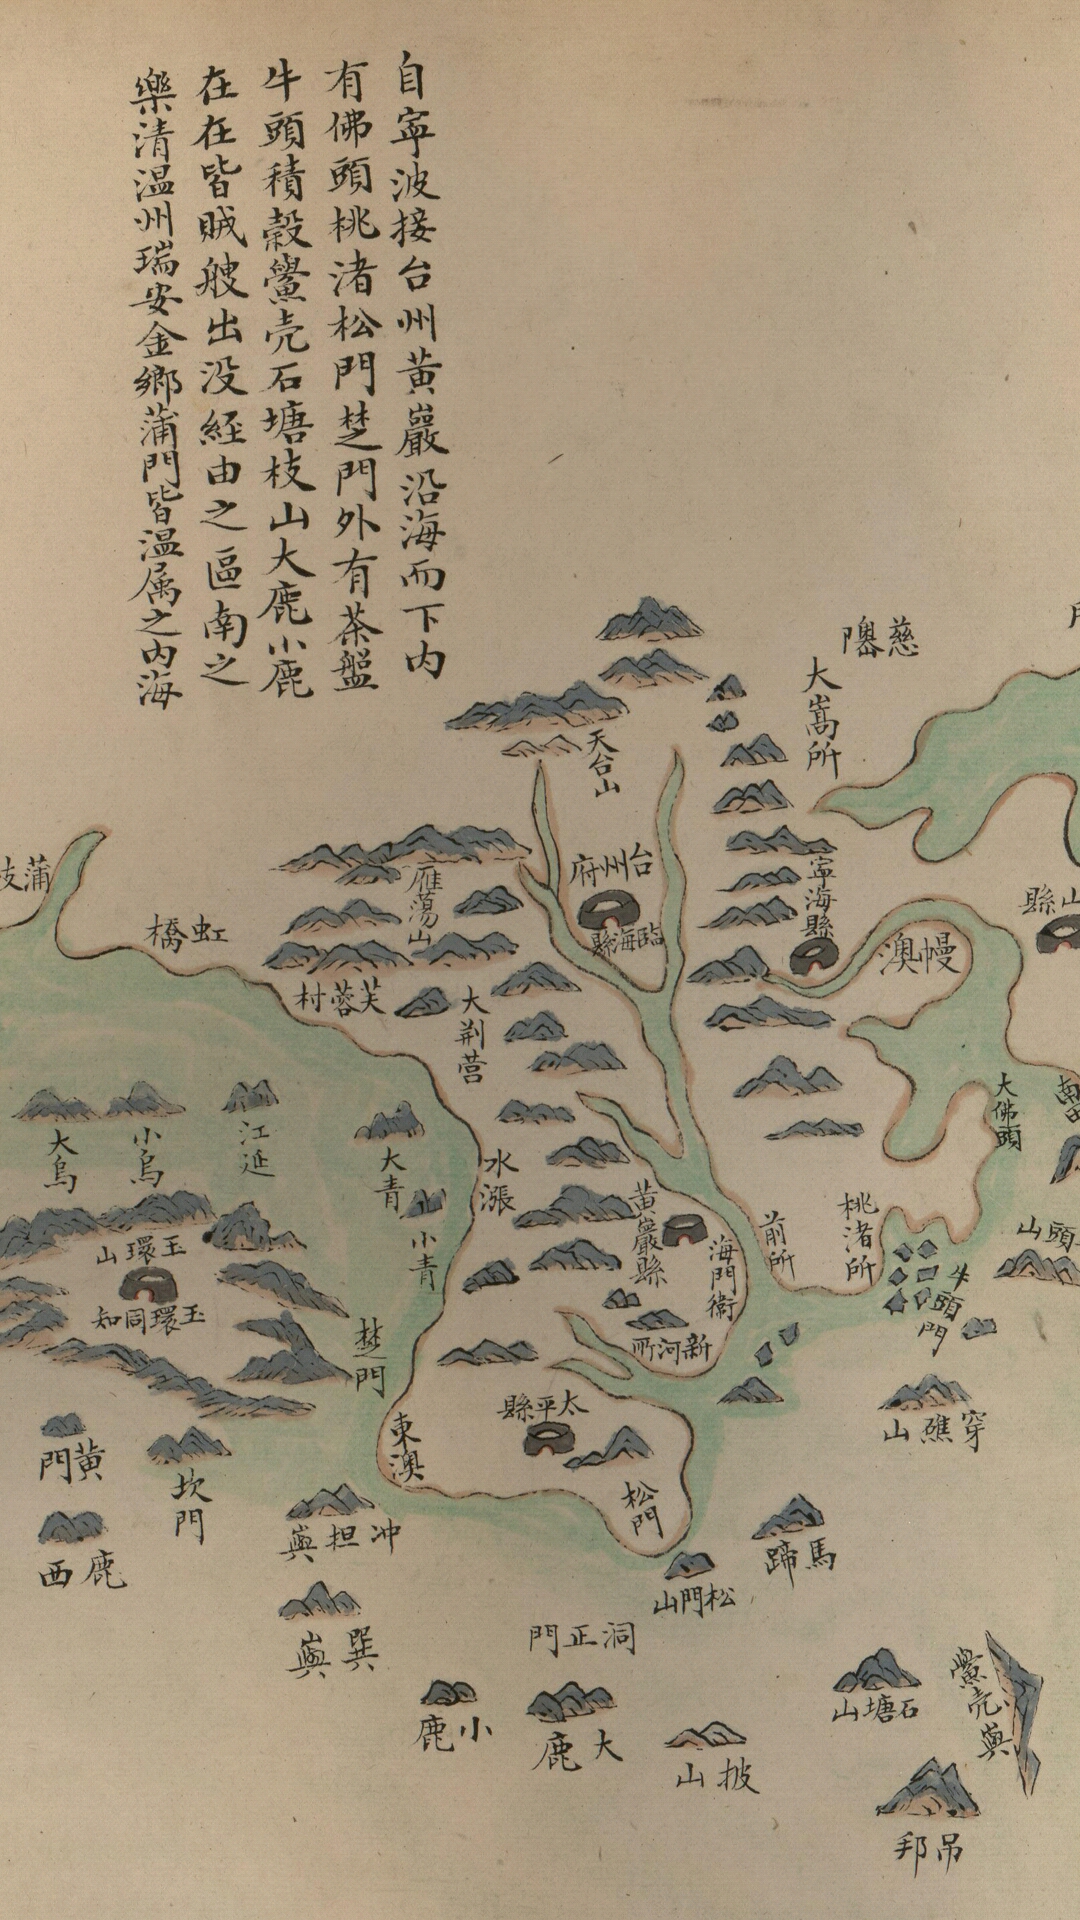 自寧波接台州黃巖沿海而下內
有佛頭桃渚松門楚門外有茶盤
牛頭積穀鱟壳石塘枝山大鹿小鹿
在在皆賊艘出没經由之區南之
樂清温州瑞安金鄉蒲門皆温属之內海
慈
大嵩所
天台山
台州府
臨海縣
寧海縣
雁蕩山
蒲
虹橋
芙蓉村
大荆营
幔澳
山縣
大佛頭
大烏
小烏
江延
大青
小青
水漲
黃巖縣
海門衛
前所
桃渚所
牛頭門
頭山
玉環山
玉環同知
楚門
新河所
太平縣
東澳
松門
穿礁山
黃門
坎門
鹿西
冲担㠘
巽㠘
馬蹄
松門山
洞正門
小鹿
大鹿
披山
石塘山
鱟壳㠘
吊邦